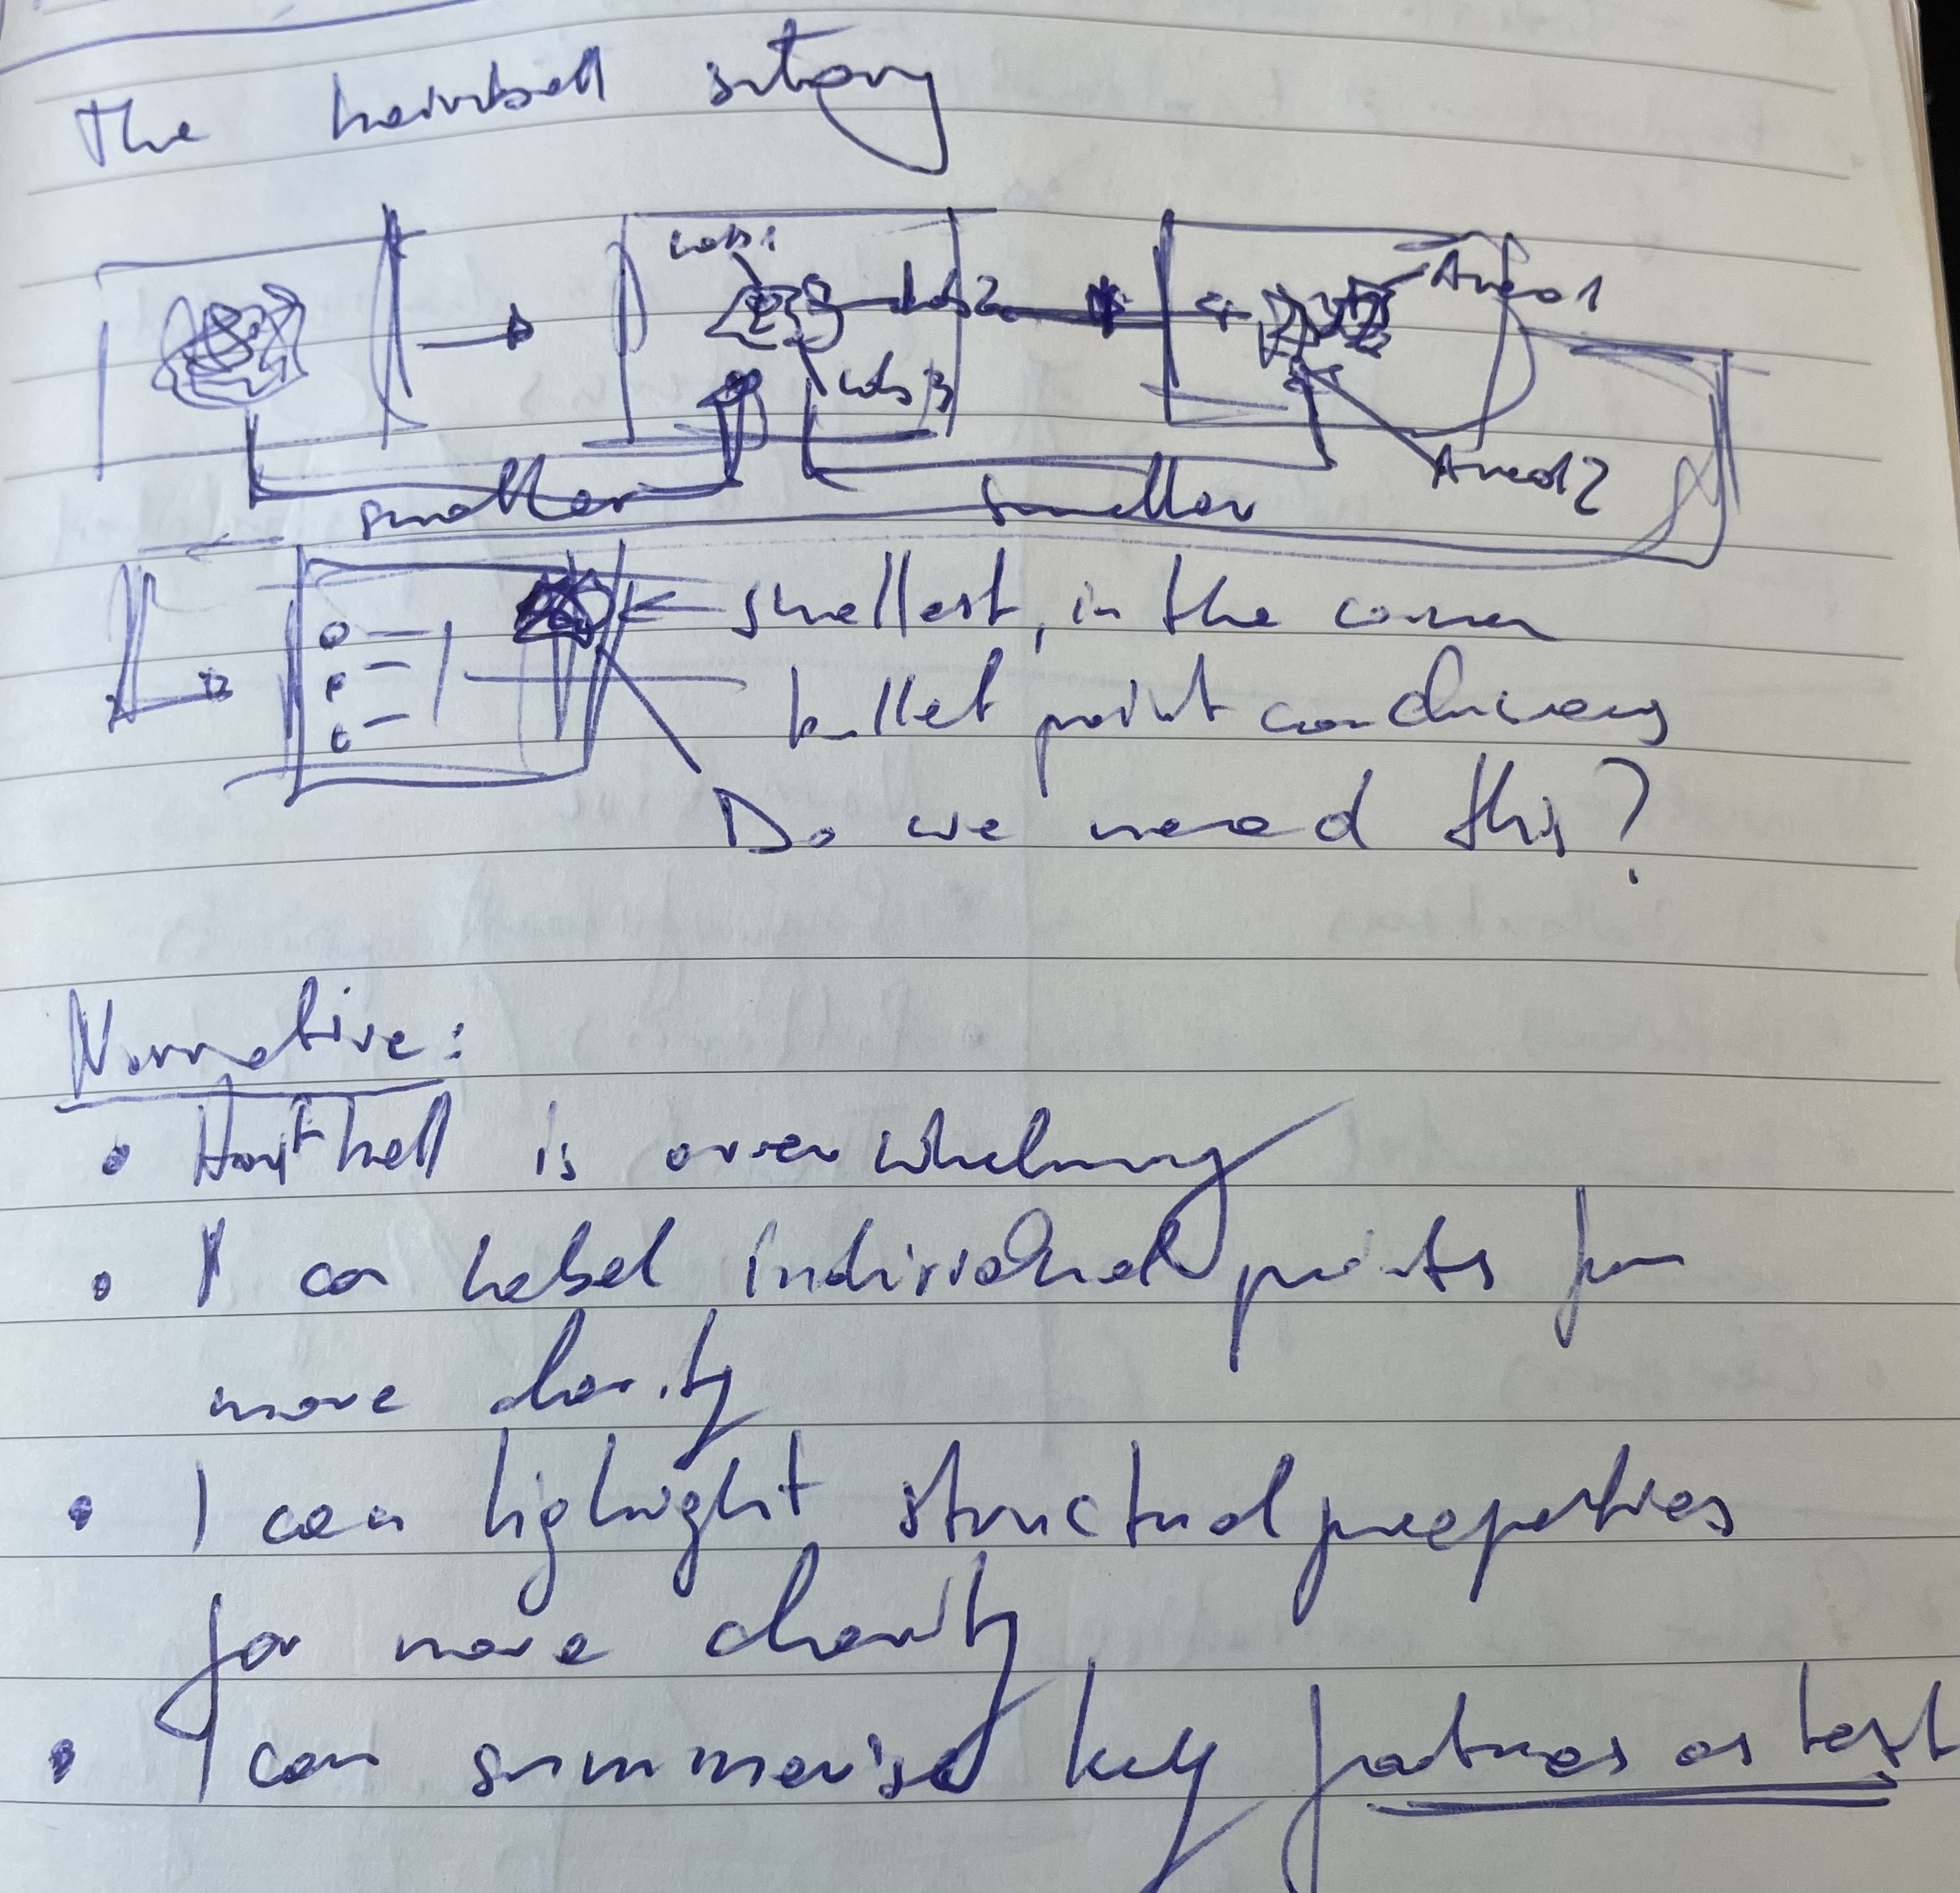 The hairball story
Lab1
Lab2
Lab3
Area1
Area2
smaller
smaller
smallest, in the corner
bullet point conclusions
Do we need this?
Narrative:
• Hairball is overwhelming
• I can label individual points for
more clarity
• I can highlight structural properties
for more clarity
• I can summarise key features as text